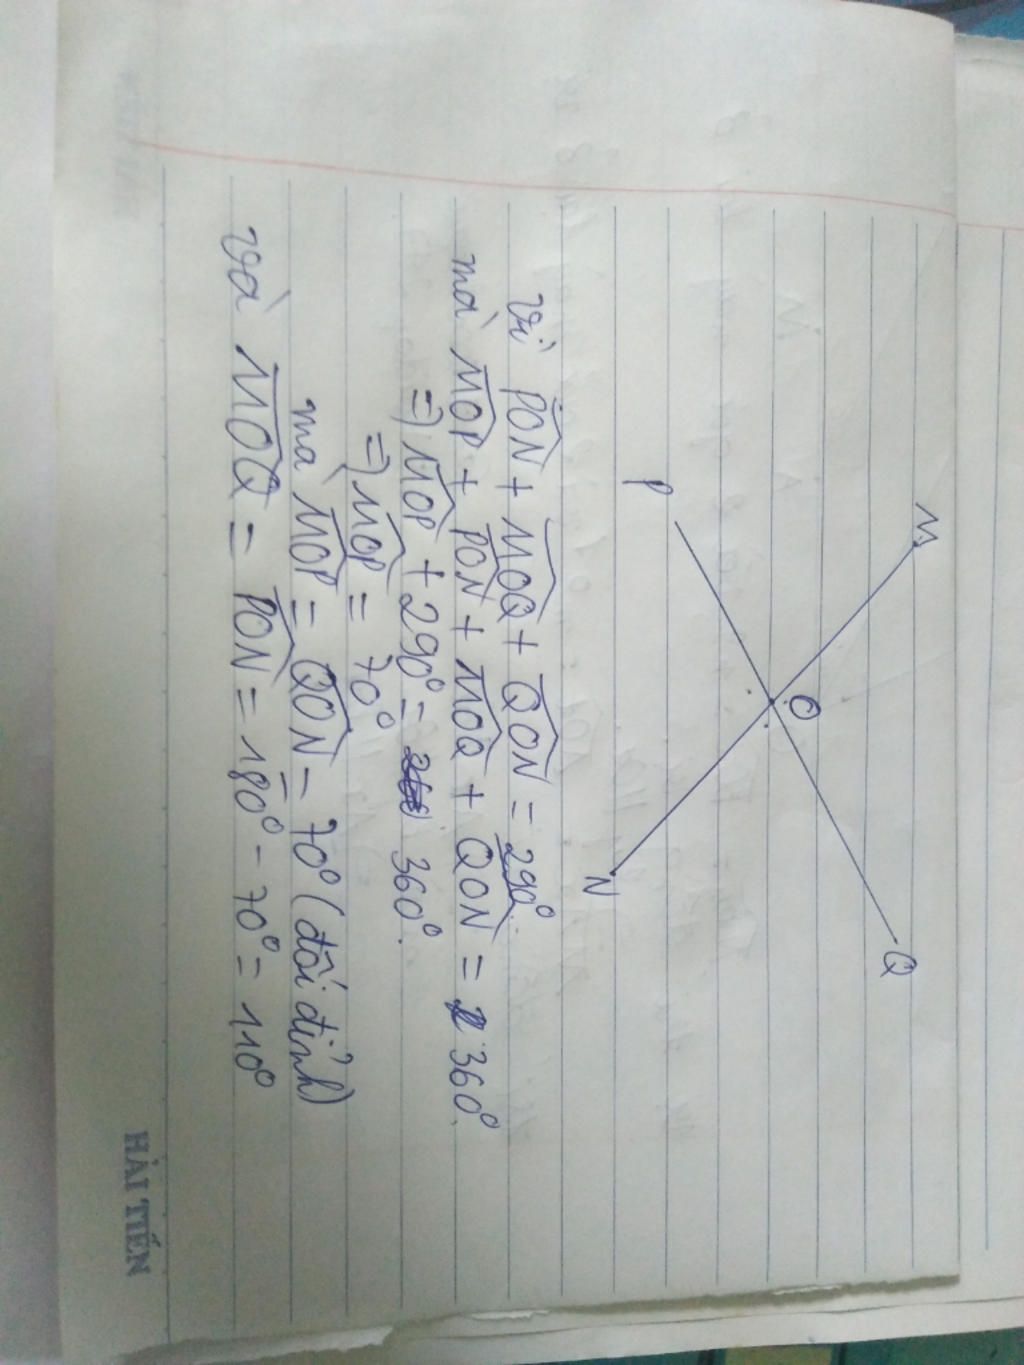 M
P
O
Q
N
Vì PON + MOQ + QON = 290°.
mà MOP + PON + MOQ + QON = 360°.
=) MOP + 290° = 360°.
=) MOP = 70°
mà MOP = QON = 70° (đối đỉnh)
và MOQ = PON = 180° - 70° = 110°
HẢI TIẾN